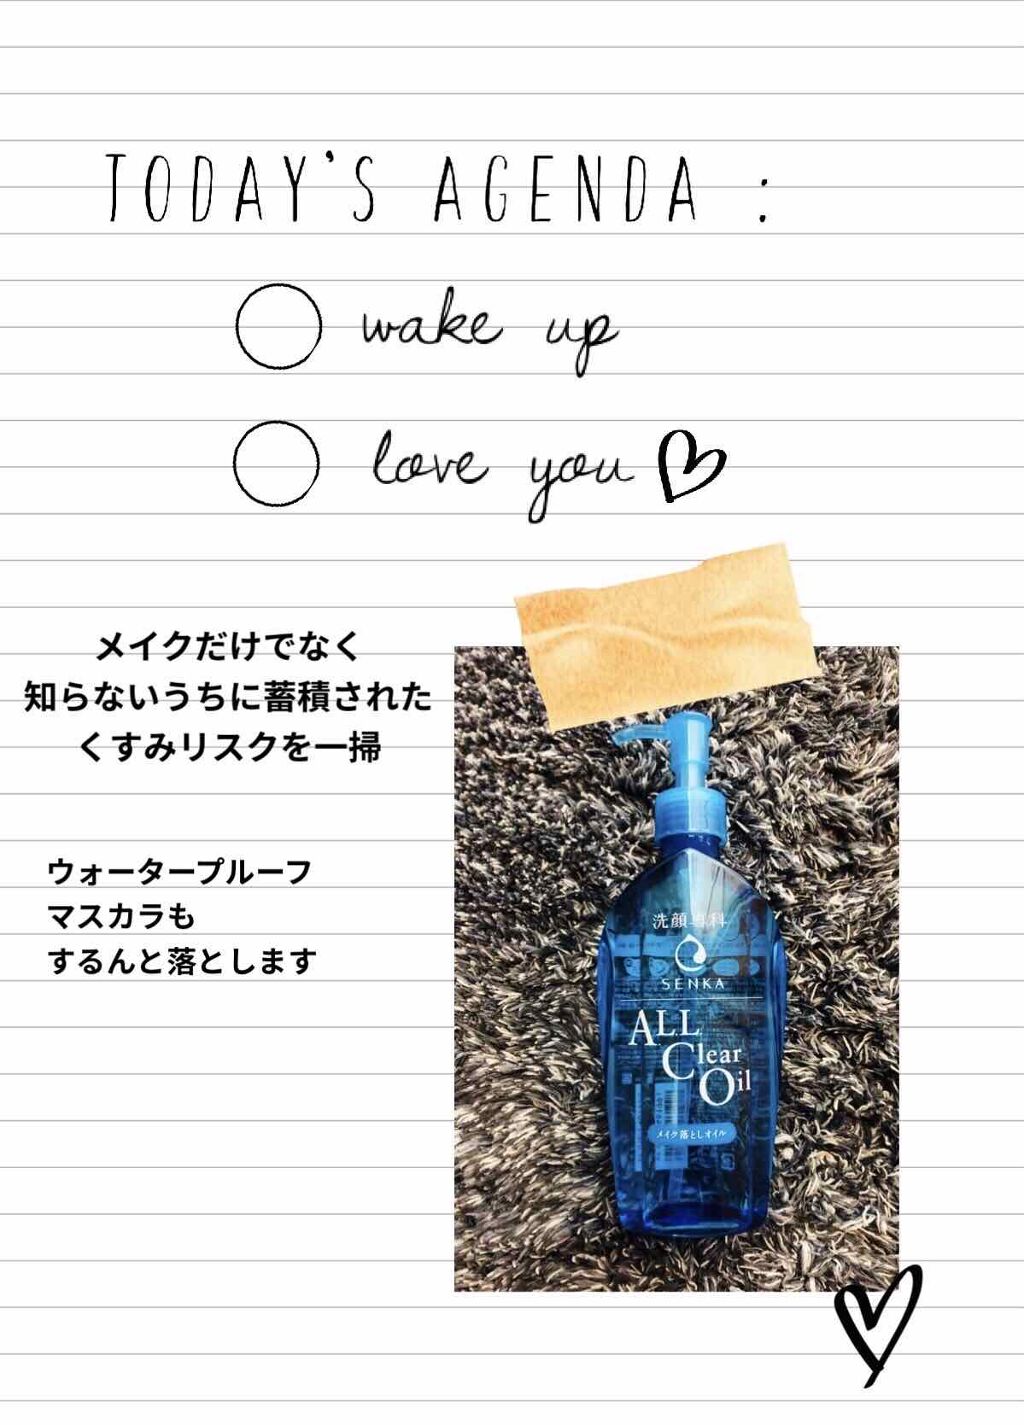 TODAY'S AGENDA :
wake up
love you
メイクだけでなく
知らないうちに蓄積された
くすみリスクを一掃
ウォータープルーフ
マスカラも
するんと落とします
洗顔専科
SENKA
ALL
Clear
Oil
メイク落としオイル